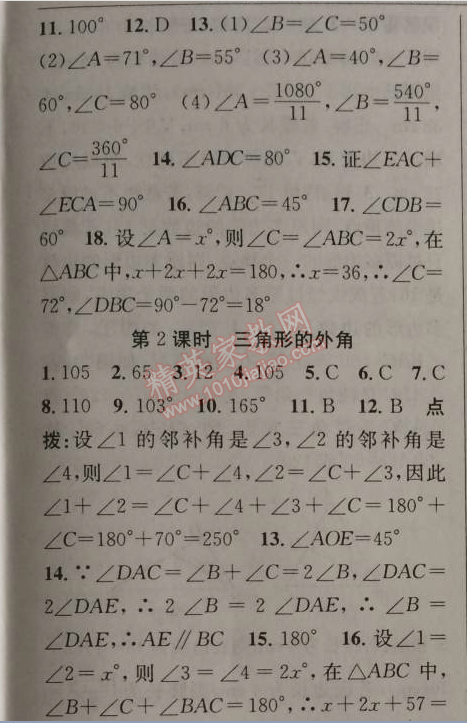 11. 100° 12. D 13. (1)∠B=∠C=50°
(2)∠A=71°,∠B=55° (3)∠A=40°,∠B=
60°,∠C=80° (4)∠A=1080°/11,∠B=540°/11,
∠C=360°/11 14. ∠ADC=80° 15. 证∠EAC+
∠ECA=90° 16. ∠ABC=45° 17. ∠CDB=
60° 18. 设∠A=x°,则∠C=∠ABC=2x°,在
△ABC中,x+2x+2x=180,∴x=36,∴∠C=
72°,∠DBC=90°-72°=18°
第2课时 三角形的外角
1. 105 2. 65 3. 12 4. 105 5. C 6. C 7. C
8. 110 9. 103° 10. 165° 11. B 12. B 点
拨:设∠1的邻补角是∠3,∠2的邻补角是
∠4,则∠1=∠C+∠4,∠2=∠C+∠3,因此
∠1+∠2=∠C+∠4+∠3+∠C=180°+
∠C=180°+70°=250° 13. ∠AOE=45°
14. ∵∠DAC=∠B+∠C=2∠B,∠DAC=
2∠DAE,∴2∠B=2∠DAE,∴∠B=
∠DAE,∴AE∥BC 15. 180° 16. 设∠1=
∠2=x°,则∠3=∠4=2x°,在△ABC中,
∠B+∠C+∠BAC=180°,∴x+2x+57=
精英家教网
www.1010jiajiao.com